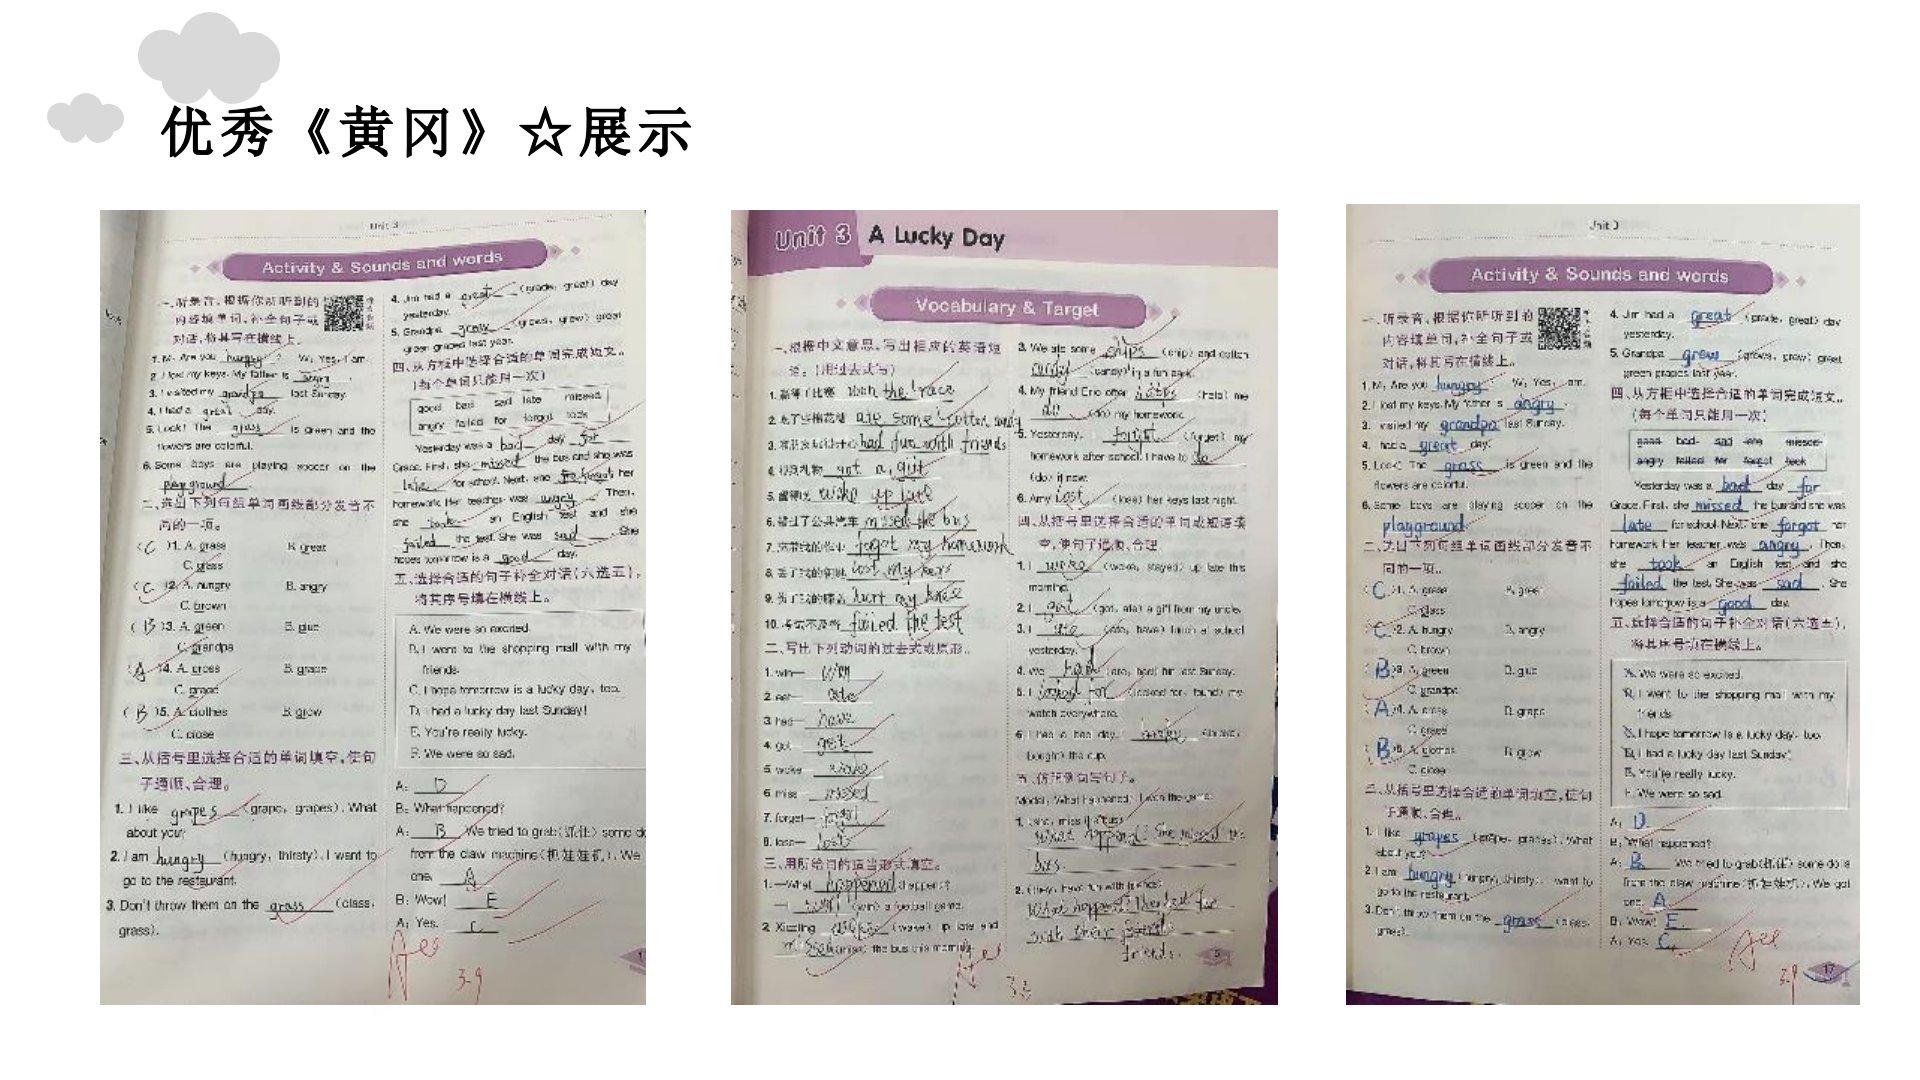 优秀《黄冈》☆展示
Unit 3
Activity & Sounds and words
一、听录音,根据你所听到的
内容填单词,补全句子或
对话,将其写在横线上。
1. M: Are you hungry? W: Yes, I am.
2. I lost my keys. My father is angry.
3. I visited my grandpa last Sunday.
4. I had a great day.
5. Look! The grass is green and the
flowers are colorful.
6. Some boys are playing soccer on the
playground
二、选出下列每组单词画线部分发音不
同的一项。
( C )1. A. grass B. great
C. glass
( C )2. A. hungry B. angry
C. brown
( B )3. A. green B. glue
C. grandpa
( A )4. A. cross B. grape
C. grace
( B )5. A. clothes B. grow
C. close
三、从括号里选择合适的单词填空,使句
子通顺、合理。
1. I like grapes (grape, grapes). What
about you?
2. I am hungry (hungry, thirsty). I want to
go to the restaurant.
3. Don't throw them on the grass (class,
grass).
4. Jim had a great (grade, great) day
yesterday.
5. Grandpa grew (grows, grew) great
green grapes last year.
四、从方框中选择合适的单词完成短文。
(每个单词只能用一次)
good bad sad late missed
angry failed for forgot took
Yesterday was a bad day for
Grace. First, she missed the bus and she was
late for school. Next, she forgot her
homework. Her teacher was angry. Then,
she took an English test and she
failed the test. She was sad. She
hopes tomorrow is a good day.
五、选择合适的句子补全对话(六选五),
将其序号填在横线上。
A. We were so excited.
B. I went to the shopping mall with my
friends.
C. I hope tomorrow is a lucky day, too.
D. I had a lucky day last Sunday!
E. You're really lucky.
F. We were so sad.
A: D
B: What happened?
A: B We tried to grab(抓住) some do
from the claw machine(抓娃娃机). We
one. A
B: Wow! E
A: Yes. C
3.9
Unit 3 A Lucky Day
Vocabulary & Target
一、根据中文意思,写出相应的英语短
语。(用过去式写)
1. 赢得了比赛 won the race
2. 吃了些棉花糖 ate some cotton candy
3. 和朋友玩得开心 had fun with friends
4. 得到礼物 got a gift
5. 醒得晚 woke up late
6. 错过了公共汽车 missed the bus
7. forgot my homework
8. lost my keys
9. hurt my
10. 考试不及格 failed the test
二、写出下列动词的过去式或原形。
1. win— won
2. eat— ate
3. had— have
4. got— get
5. woke—
6. miss— missed
7. forget— forgot
8. lose— lost
三、用所给词的适当形式填空。
1. —What happened (happen)?
—I (win) a football game.
2. Xinling (wake) up late and
(miss) the bus this morning.
3. We ate some chips (chip) and cotton
candy (candy) in a fun park.
4. My friend Eric often helps (help) me
do (do) my homework.
5. Yesterday, I forgot (forget) my
homework after school. I have to do
(do) it now.
6. Amy lost (lose) her keys last night.
四、从括号里选择合适的单词或短语填
空,使句子通顺、合理。
1. I woke (woke, stayed) up late this
morning.
2. I got (got, ate) a gift from my uncle.
3. I ate (ate, have) lunch at school
yesterday.
4. We had (are, had) fun last Sunday.
5. I looked for (looked for, found) my
watch everywhere.
6. I had a bad day. I broke (broke,
bought) the cup.
五、仿照例句写句子。
Model: What happened? I won the game.
1. she, miss the bus
What happened? She missed the
bus.
2. they, have fun with friends
What happened? They had fun
with their
friends.
5
3.3
Unit 3
Activity & Sounds and words
一、听录音,根据你所听到的
内容填单词,补全句子或
对话,将其写在横线上。
1. M: Are you hungry? W: Yes, I am.
2. I lost my keys. My father is angry.
3. I visited my grandpa last Sunday.
4. I had a great day.
5. Look! The grass is green and the
flowers are colorful.
6. Some boys are playing soccer on the
playground
二、选出下列每组单词画线部分发音不
同的一项。
( C )1. A. grass B. great
C. glass
( C )2. A. hungry B. angry
C. brown
( B )3. A. green B. glue
C. grandpa
( A )4. A. cross B. grape
C. grace
( B )5. A. clothes B. grow
C. close
三、从括号里选择合适的单词填空,使句
子通顺、合理。
1. I like grapes (grape, grapes). What
about you?
2. I am hungry (hungry, thirsty). I want to
go to the restaurant.
3. Don't throw them on the grass (class,
grass).
4. Jim had a great (grade, great) day
yesterday.
5. Grandpa grew (grows, grew) great
green grapes last year.
四、从方框中选择合适的单词完成短文。
(每个单词只能用一次)
good bad sad late missed
angry failed for forgot took
Yesterday was a bad day for
Grace. First, she missed the bus and she was
late for school. Next, she forgot her
homework. Her teacher was angry. Then,
she took an English test and she
failed the test. She was sad. She
hopes tomorrow is a good day.
五、选择合适的句子补全对话(六选五),
将其序号填在横线上。
A. We were so excited.
B. I went to the shopping mall with my
friends.
C. I hope tomorrow is a lucky day, too.
D. I had a lucky day last Sunday!
E. You're really lucky.
F. We were so sad.
A: D
B: What happened?
A: B We tried to grab(抓住) some dolls
from the claw machine(抓娃娃机). We got
one. A
B: Wow! E
A: Yes. C
3.9
17